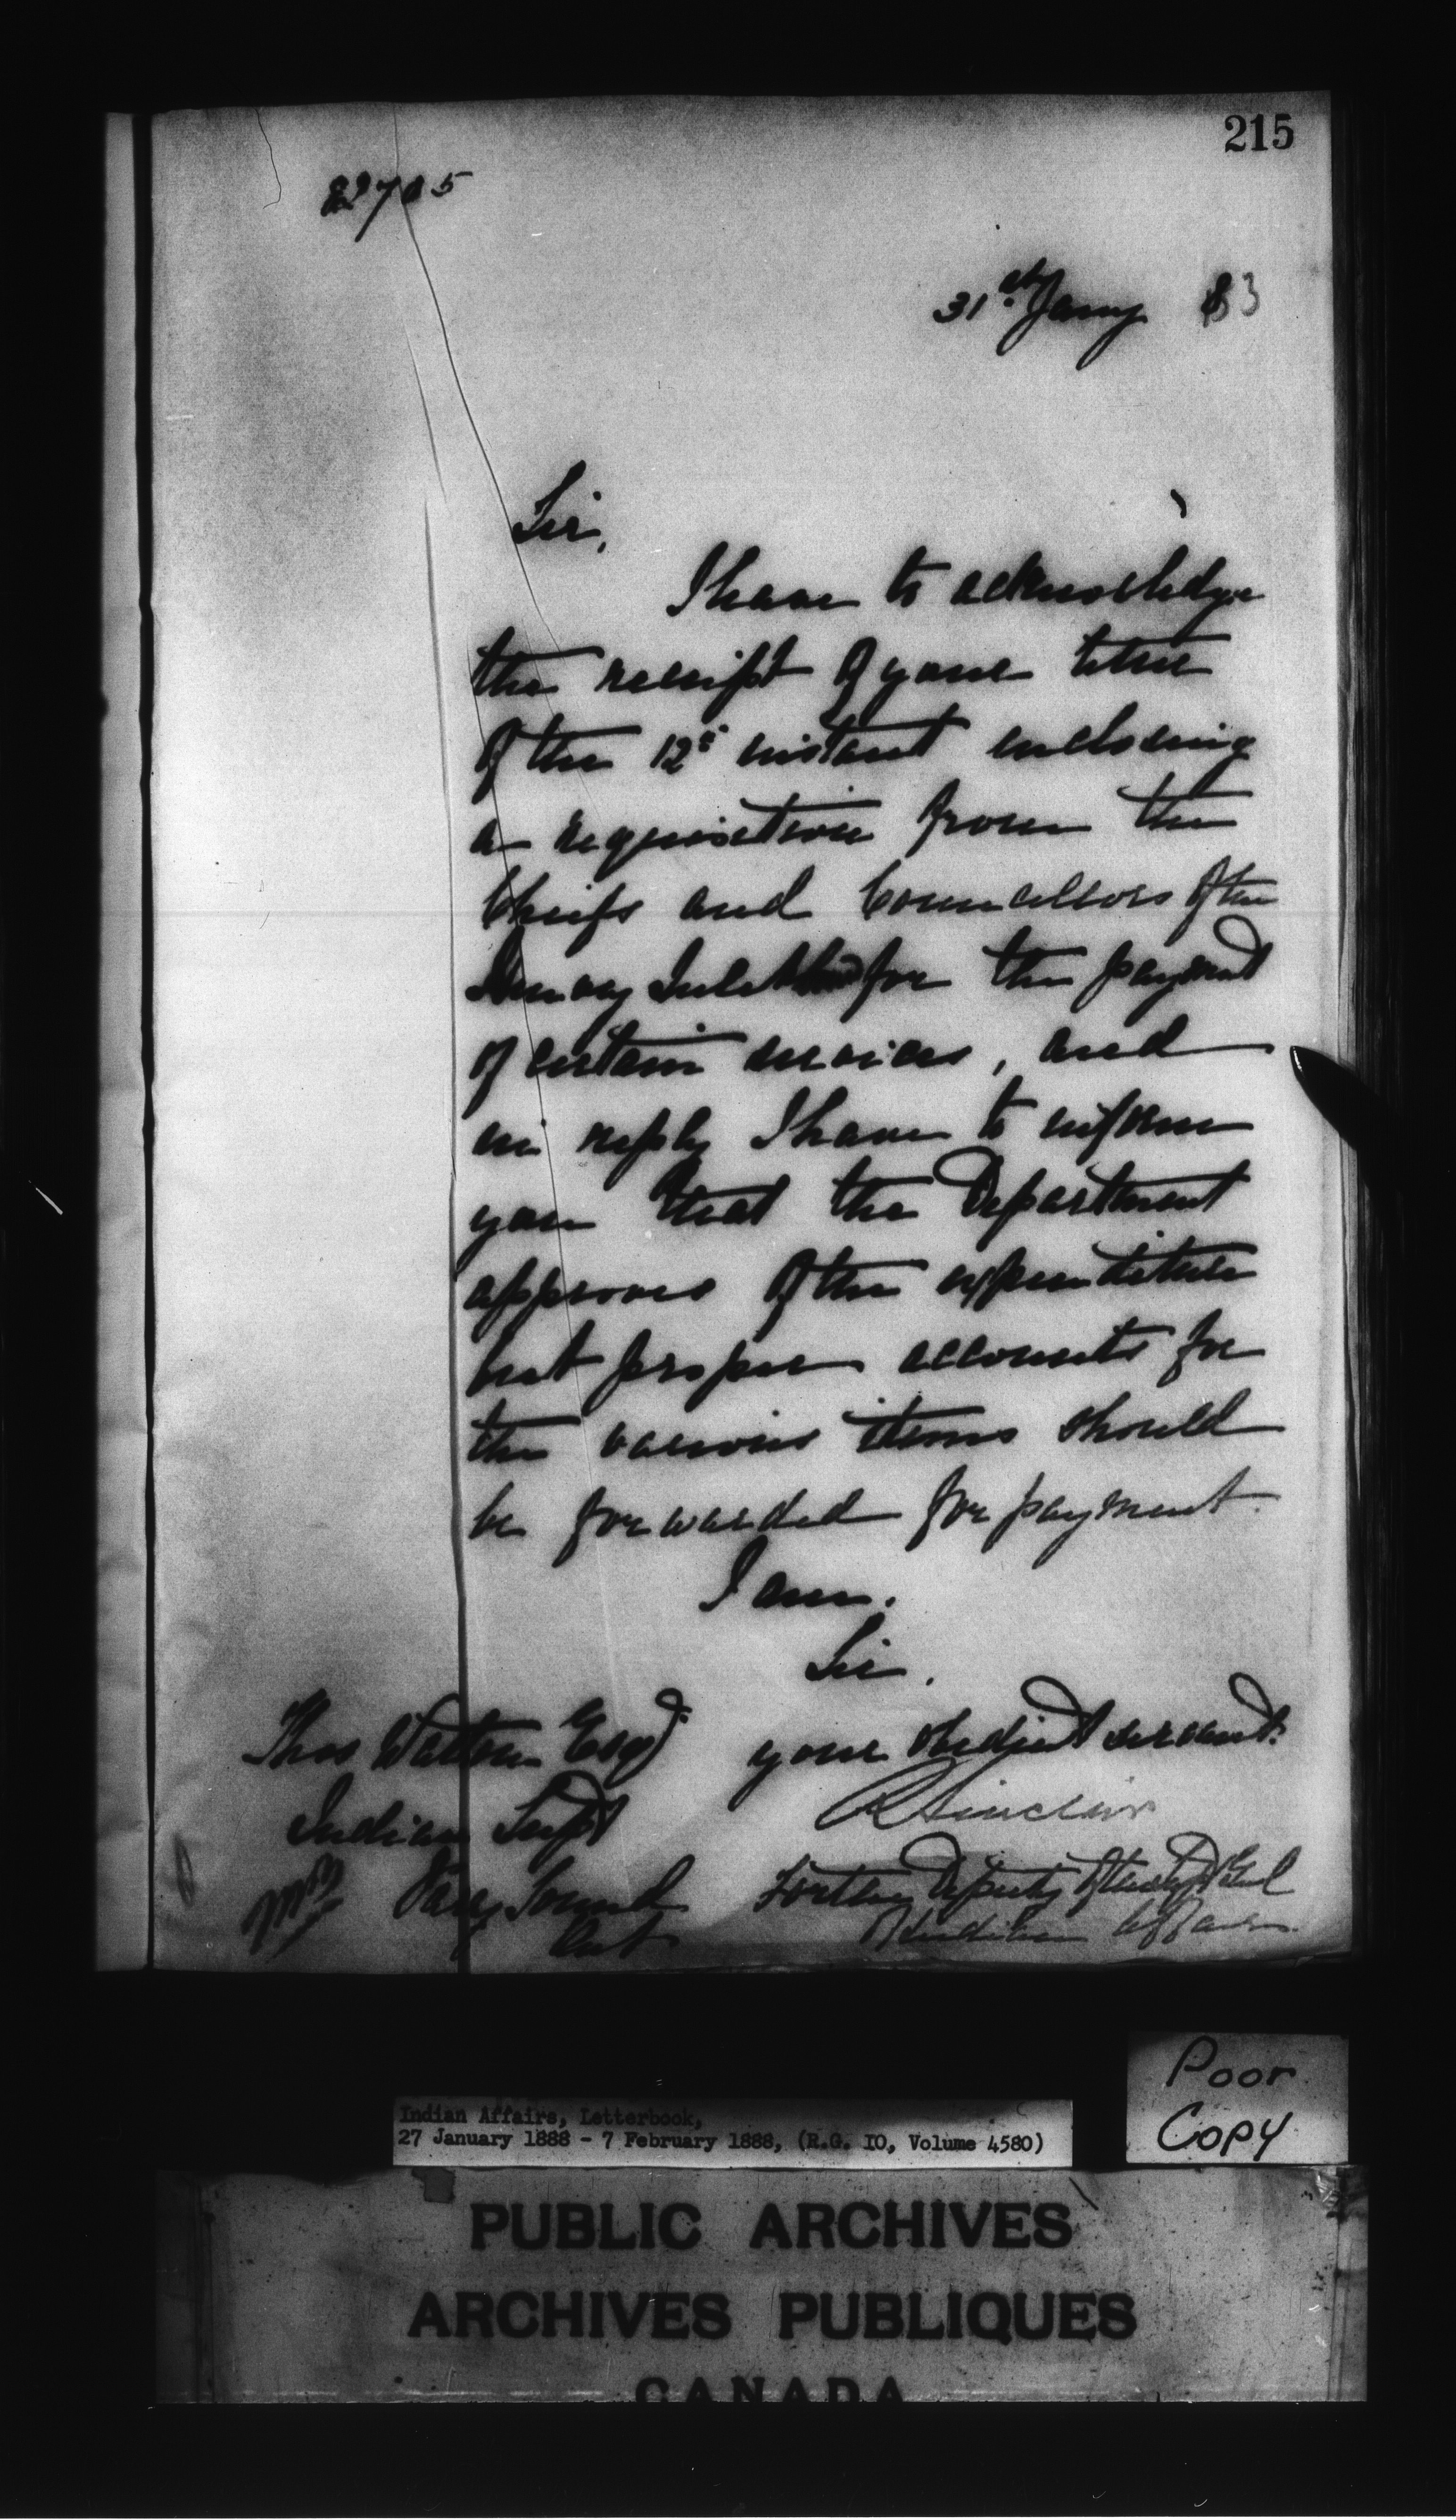 215
82705
31st Jany 83
Sir,
I have to acknowledge
the receipt of your letter
of the 12th instant enclosing
a requisition from the
Chiefs and Councillors of the
Henvey Inlet Band for the payment
of certain services, and
in reply I have to inform
you that the Department
approves of the expenditure
but proper accounts for
the various items should
be forwarded for payment.
I am.
Sir.
your obedient servant.
R Sinclair
For the Deputy of the Supt Genl
of Indian Affairs.
Thos Walton Esqr
Indian Supt
Parry Sound
Ont
Poor
Copy
Indian Affairs, Letterbook,
27 January 1888 - 7 February 1888, (R.G. IO, Volume 4580)
PUBLIC ARCHIVES
ARCHIVES PUBLIQUES
CANADA